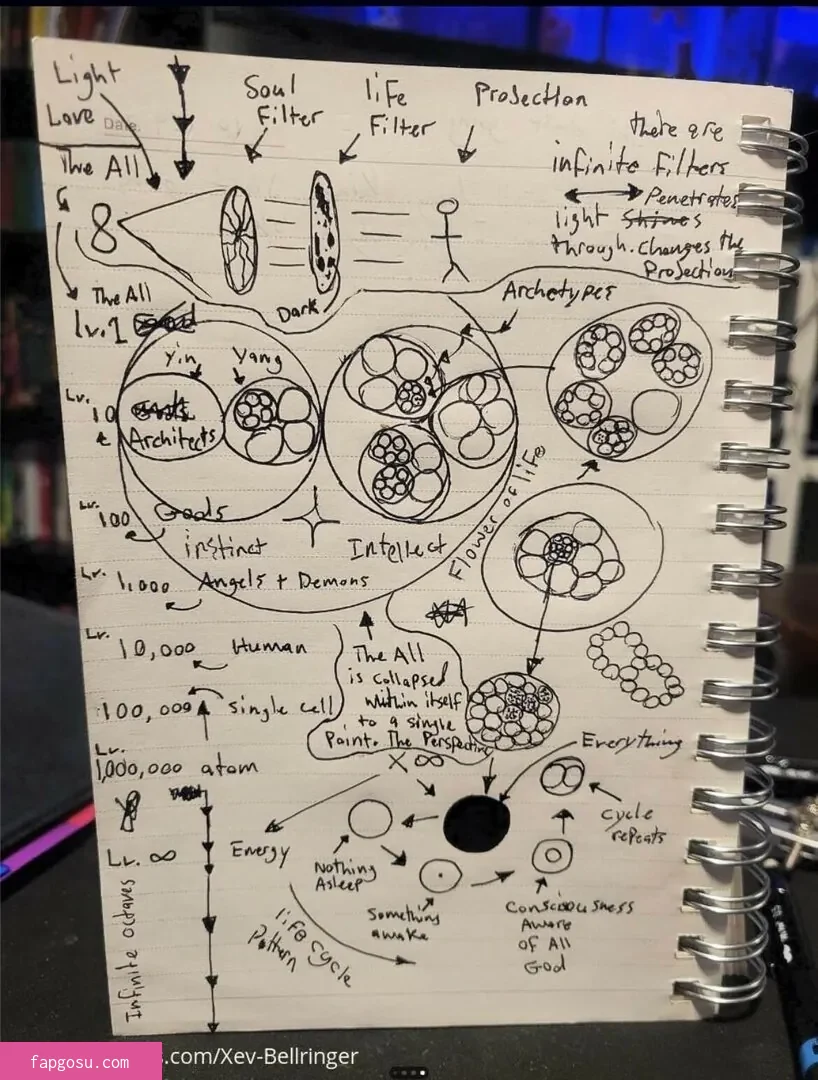 Light
Love
Date
The All
Soul
Filter
life
Filter
Projection
there are
infinite filters
Penetrates
light Shines
through. Changes the
Projection
8
Dark
The All
Lv.1 God
Archetypes
Yin
Yang
Lv.
10
Gods
Architects
Lv.
100
Gods
instinct
Intellect
Flower of life
Lv.
1,000
Angels + Demons
Lv.
10,000
Human
100,000
Single cell
Lv.
1,000,000 atom
The All
is collapsed
within itself
to a single
Point. The Perspective
X ∞
Everything
cycle
repeats
Lv. ∞
Energy
Nothing
Asleep
Something
awake
Consciousness
Aware
of All
God
life cycle
Pattern
Infinite octaves
fapgosu.com
s.com/Xev-Bellringer